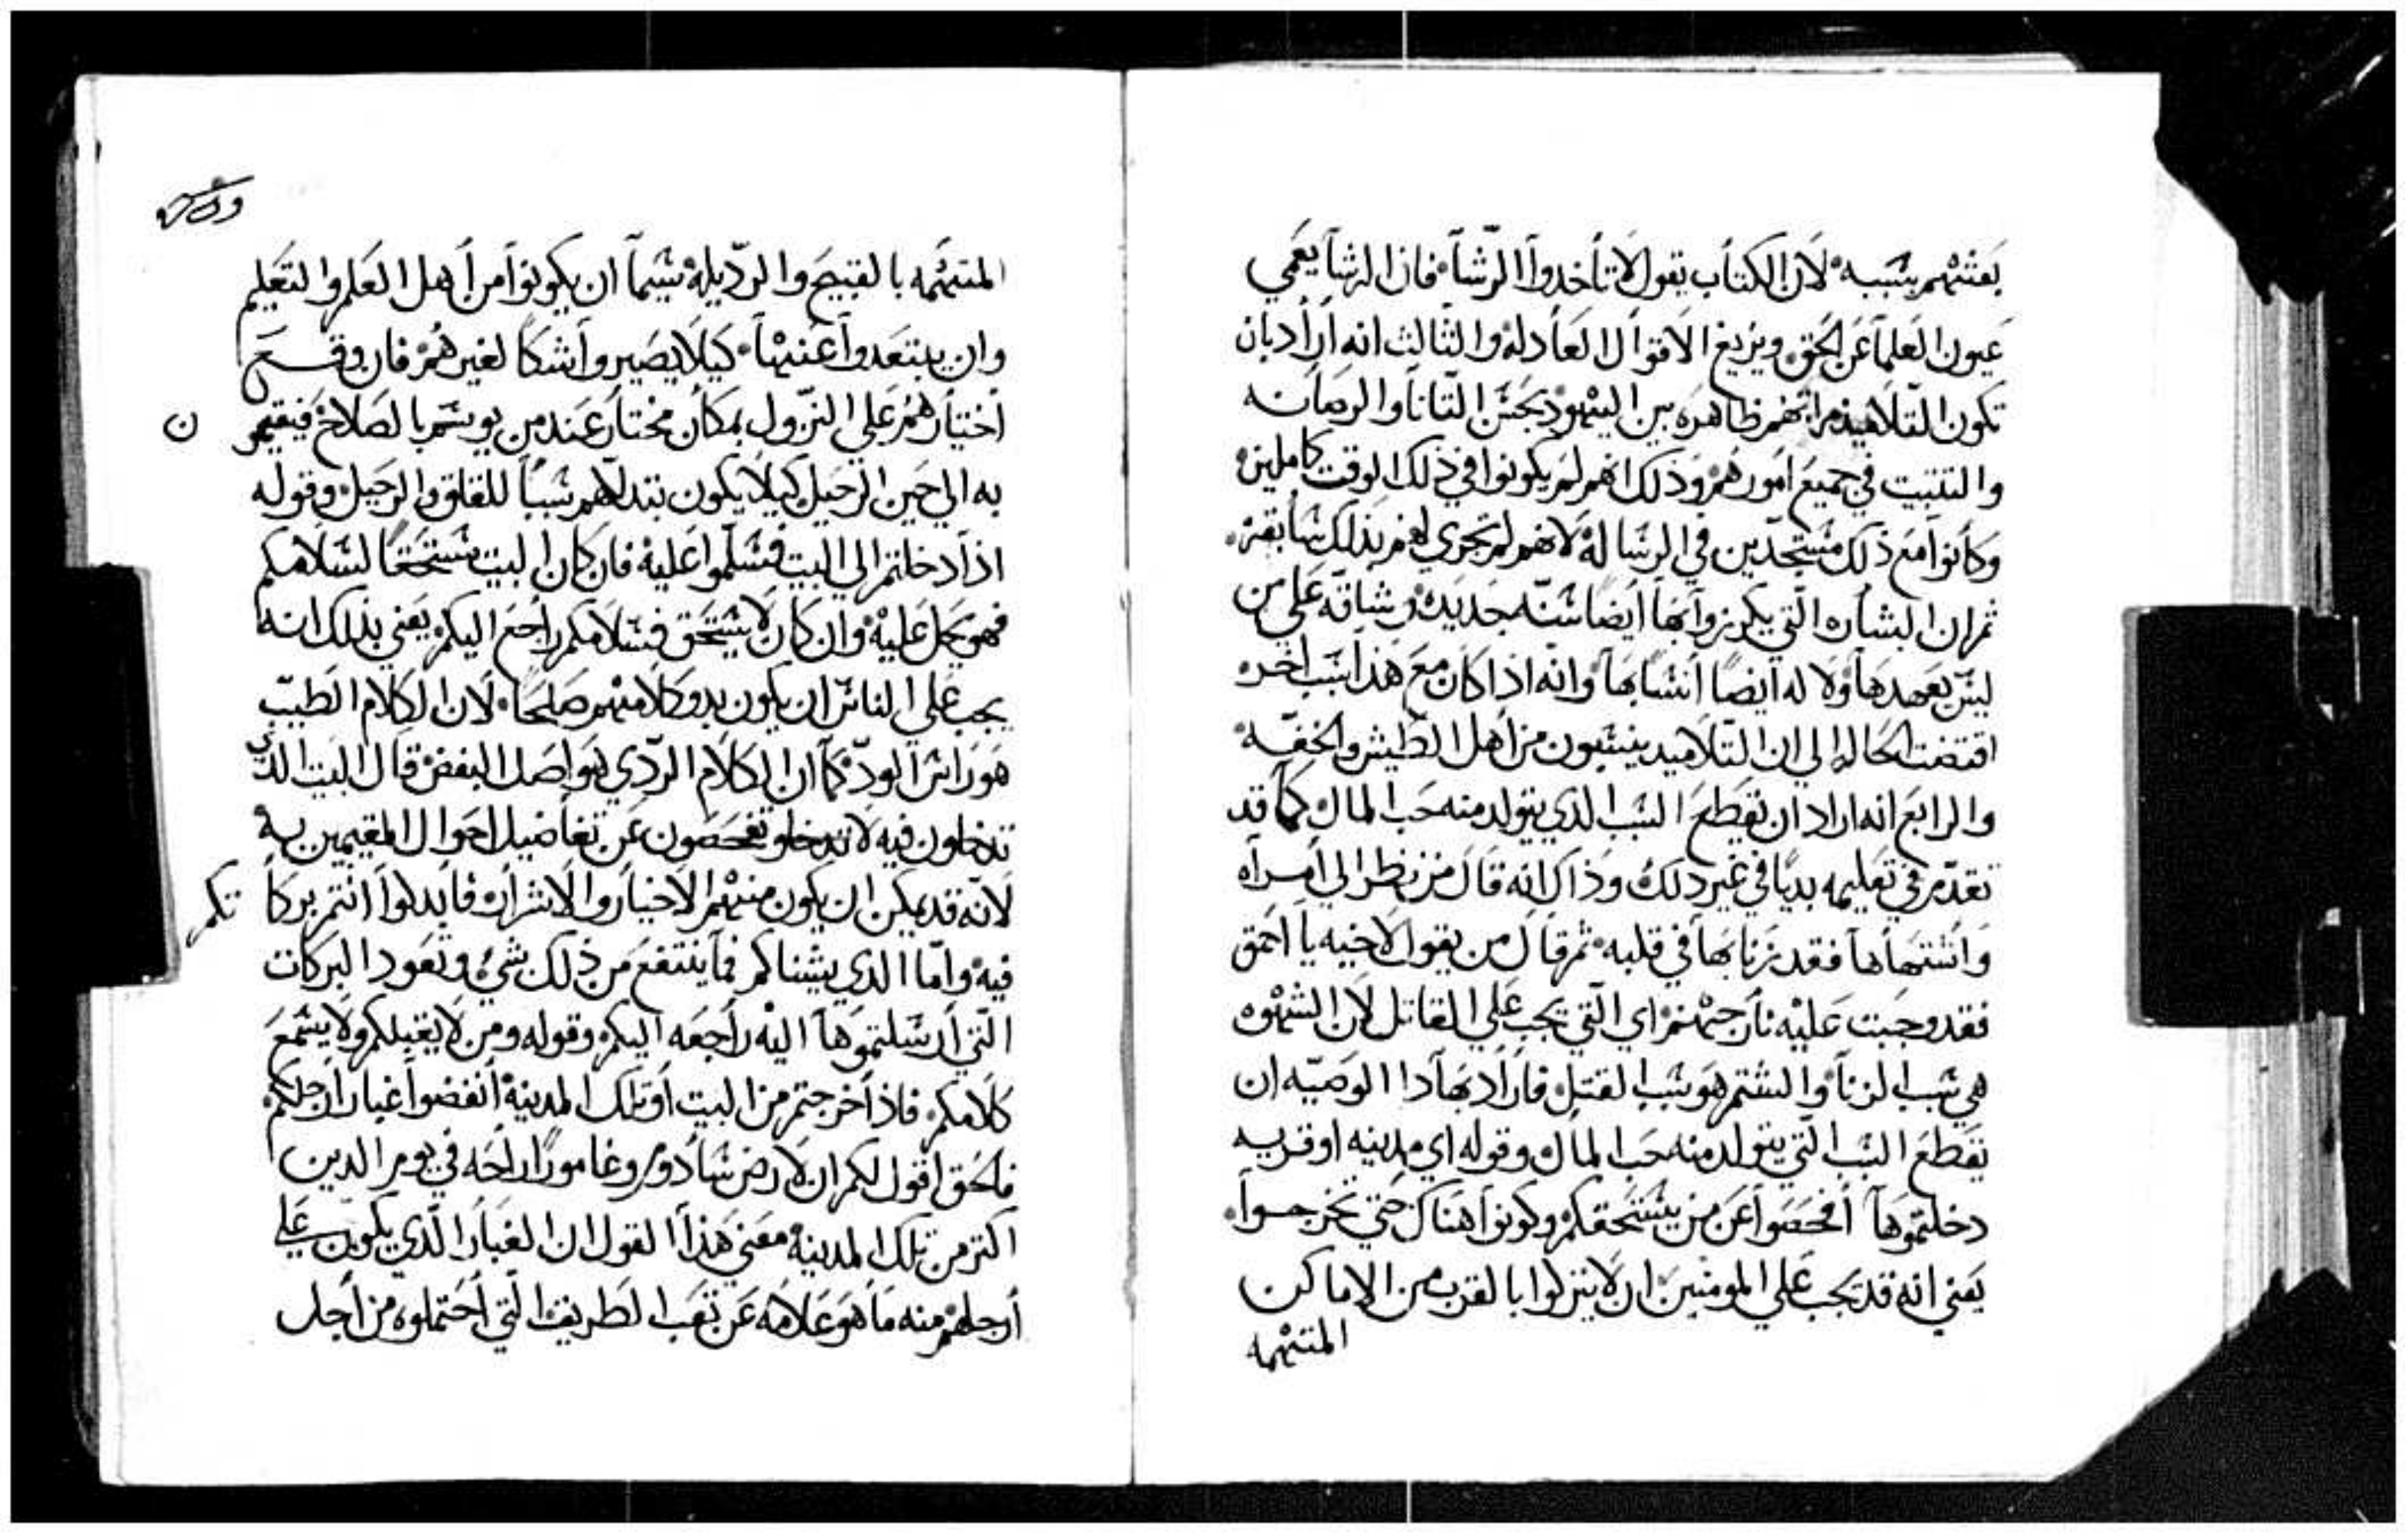 بعثهم بسببه لان الكتاب يقول لا تاخدوا الرشا فان الرشا يعمي
عيون العلما عن الحق ويزيغ الاقوال العادله والثالث انه اراد بان
تكون التلاميذ مراتهم ظاهره بين اليهود بحسن التانا والرصانه
والتثبيت في جميع امورهم وذلك انهم لم يكونوا في ذلك الوقت كاملين
وكانوا مع ذلك مستجدين في الرساله لانهم لم تجري لهم بذلك سابقه
ثم ان البشاره التي يكرزوا بها ايضا سنه جديده وشاقه علي من
ليس يعهدها ولا له ايضا انسا بها وانه اذا كان مع هذا سبب اخر
اقتضت الحال الي ان التلاميد ينسبون من اهل الطيش والخفه
والرابع انه اراد ان تقطع السبب الذي يتولد منه حب المال كما قد
تقدم في تعليمه بديا في غير دلك وذاك انه قال من نظر الي امراه
واشتهاها فقد زنا بها في قلبه ثم قال من يقول لاخيه يا احمق
فقد وجبت عليه نار جهنم اي التي تجب علي القاتل لان الشهوه
هي سبب الزنا والشتم هو سبب القتل فاراد بهادا الوصيه ان
تقطع السبب التي يتولد منه حب المال وقوله اي مدينه او قريه
دخلتموها افحصوا عن من يستحقكم وكونوا هناك حتي تخرجوا
يعني انه قد يجب علي المومنين ان لا ينزلوا بالقرب من الاماكن
المتهمه
المتهمه بالقبيح والرديله سيما ان يكونوا من اهل العلم والتعليم
وان يبتعدوا عنها كيلا يصيروا شكا لغيرهم فان وقع
اختيارهم علي النزول بمكان مختار عند من يوسم بالصلاح فيقيمو ن
به الي حين الرحيل كيلا يكون تبدلهم سببا للقلق والرحيل وقوله
اذا دخلتم الي البيت فسلموا عليه فان كان البيت مستحقا لسلامكم
فهو يحل عليه وان كان لا يستحق فسلامكم راجع اليكم يعني بذلك انه
يجب علي الناس ان يكون بدو كلامهم صالحا لان الكلام الطيب
هو راس الود كما ان الكلام الردي يواصل البغض قال البيت الدي
تدخلون فيه لا تدخلو تفحصون عن تفاضيل احوال المقيمين به
لانه قد يمكن ان يكون منهم الاخيار والاشرار فابدلوا انتم بركا تكم
فيه واما الذي يشناكم فما ينتفع من ذلك شي وتعود البركات
التي ارسلتموها اليه راجعه اليكم وقوله ومن لا يقبلكم ولا يسمع
كلامكم فاذا خرجتم من البيت او تلك المدينه انفضوا غبار ارجلكم
فالحق اقول لكم ان لارض سادوم وغامورا راحه في يوم الدين
اكتر من تلك المدينه معني هذا القول ان الغبار الذي يكون علي
ارجلهم منه ما هو علامه عن تعب الطريق التي احتملوه من اجل